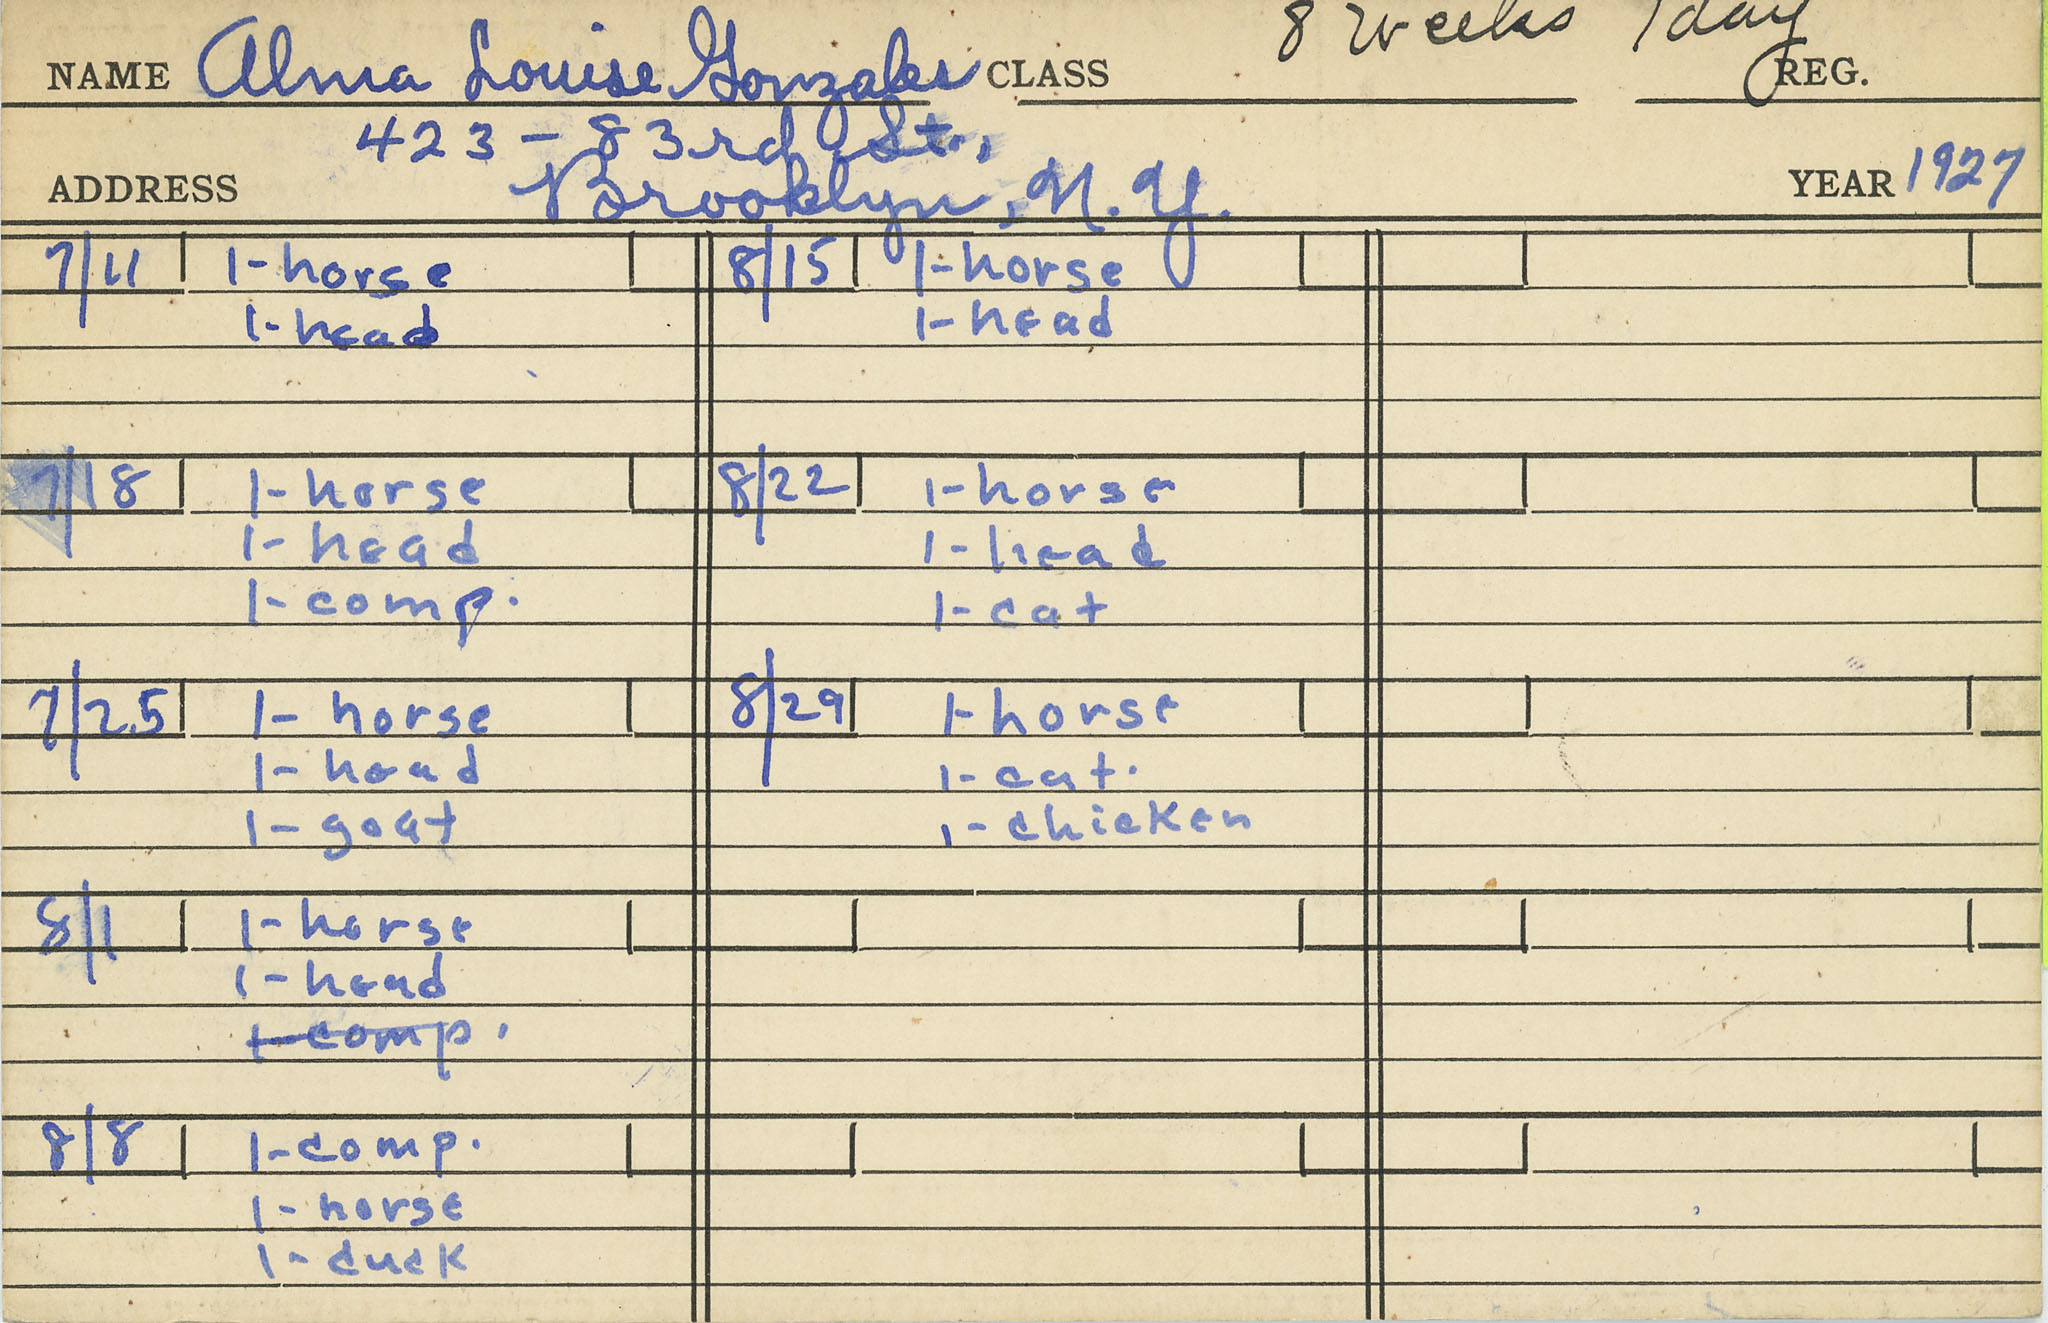 8 weeks 1 day
NAME Alma Louise Gonzales CLASS REG.
423 - 83rd St.,
ADDRESS Brooklyn, N. Y. YEAR 1927
7/11 1- horse
1- head
7/18 1- horse
1- head
1- comp.
7/25 1- horse
1- head
1- goat
8/1 1- horse
1- head
1- comp.
8/8 1- comp.
1- horse
1- duck
8/15 1- horse
1- head
8/22 1- horse
1- head
1- cat
8/29 1- horse
1- cat.
1- chicken